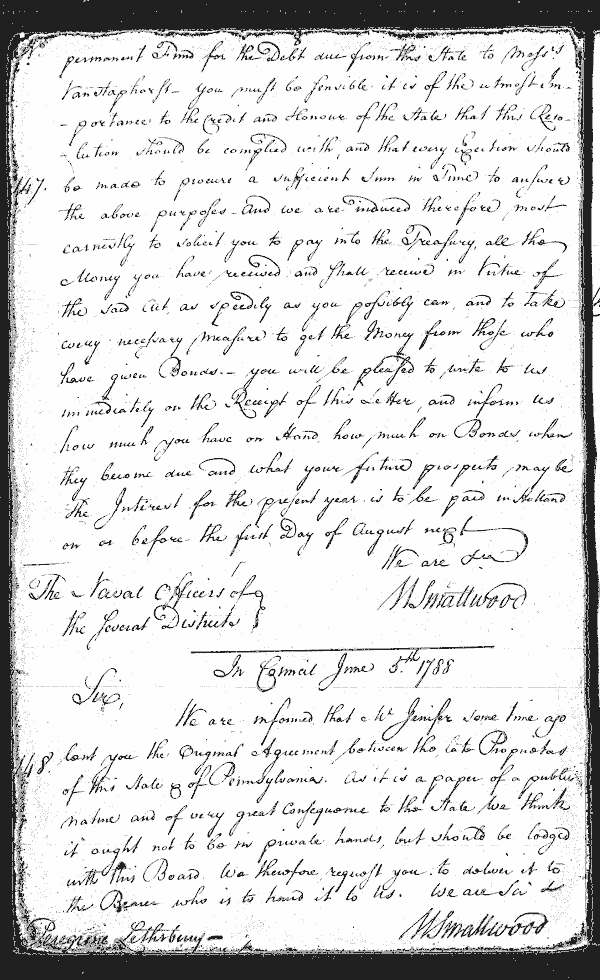 8
permanent Fund for the Debt due from this State to Mess.rs
Vanstaphorst - you must be sensible it is of the utmost Im-
- portance to the Credit and Honour of the State that this Reso-
- lution should be complied with, and that every Exertion should
147. be made to procure a sufficient Sum in Time to answer
the above purposes - And we are induced therefore, most
earnestly to solicit you to pay into the Treasury, all the
Money you have received and shall receive in Virtue of
the said Act, as speedily as you possibly can, and to take
every necessary measure to get the Money from those who
have given Bonds. - you will be pleased to write to us
immediately on the Receipt of this Letter, and inform us
how much you have on Hand, how much on Bonds, when
they become due and what your future prospects may be
The Interest for the present year is to be paid in Holland
on or before the first Day of August next
We are Sir
The Naval Officers of
the several Districts
W Smallwood
In Council June 5.th 1788
Sir,
We are informed that Mr Jenifer some time ago
148. lent you the Original Agreement between the late Proprietors
of this State & of Pennsylvania. As it is a paper of a public
nature and of very great Consequence to the State we think
it ought not to be in private hands, but should be lodged
with this Board. We therefore request you to deliver it to
the Bearer who is to hand it to us. We are Sir &
Peregrine Letherbury -
W Smallwood